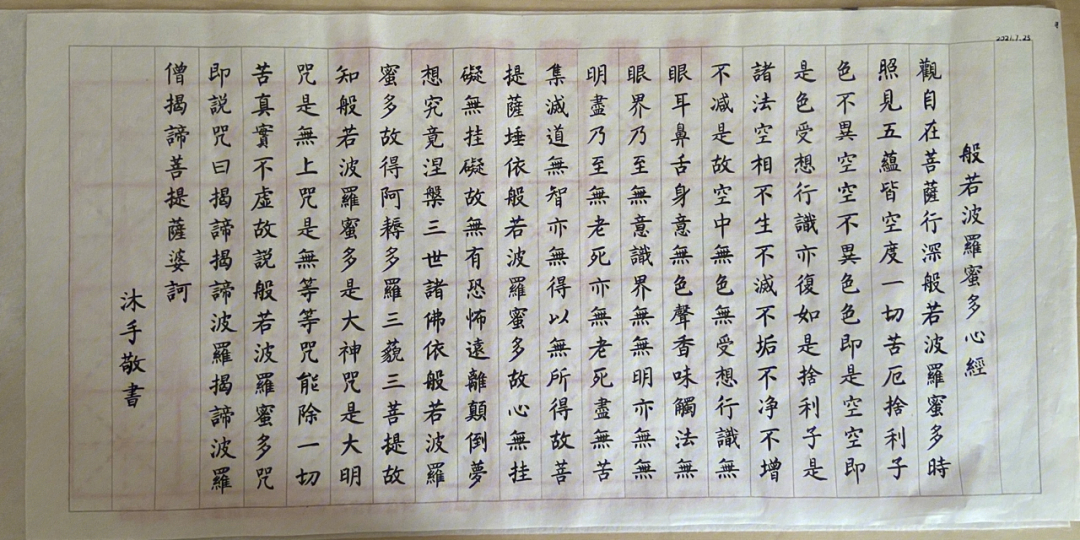 2021.7.25
般若波羅蜜多心經
觀自在菩薩行深般若波羅蜜多時
照見五蘊皆空度一切苦厄捨利子
色不異空空不異色色即是空空即
是色受想行識亦復如是捨利子是
諸法空相不生不滅不垢不净不增
不减是故空中無色無受想行識無
眼耳鼻舌身意無色聲香味觸法無
眼界乃至無意識界無無明亦無無
明盡乃至無老死亦無老死盡無苦
集滅道無智亦無得以無所得故菩
提薩埵依般若波羅蜜多故心無挂
礙無挂礙故無有恐怖遠離顛倒夢
想究竟涅槃三世諸佛依般若波羅
蜜多故得阿耨多羅三藐三菩提故
知般若波羅蜜多是大神咒是大明
咒是無上咒是無等等咒能除一切
苦真實不虛故説般若波羅蜜多咒
即説咒曰揭諦揭諦波羅揭諦波羅
僧揭諦菩提薩婆訶
沐手敬書